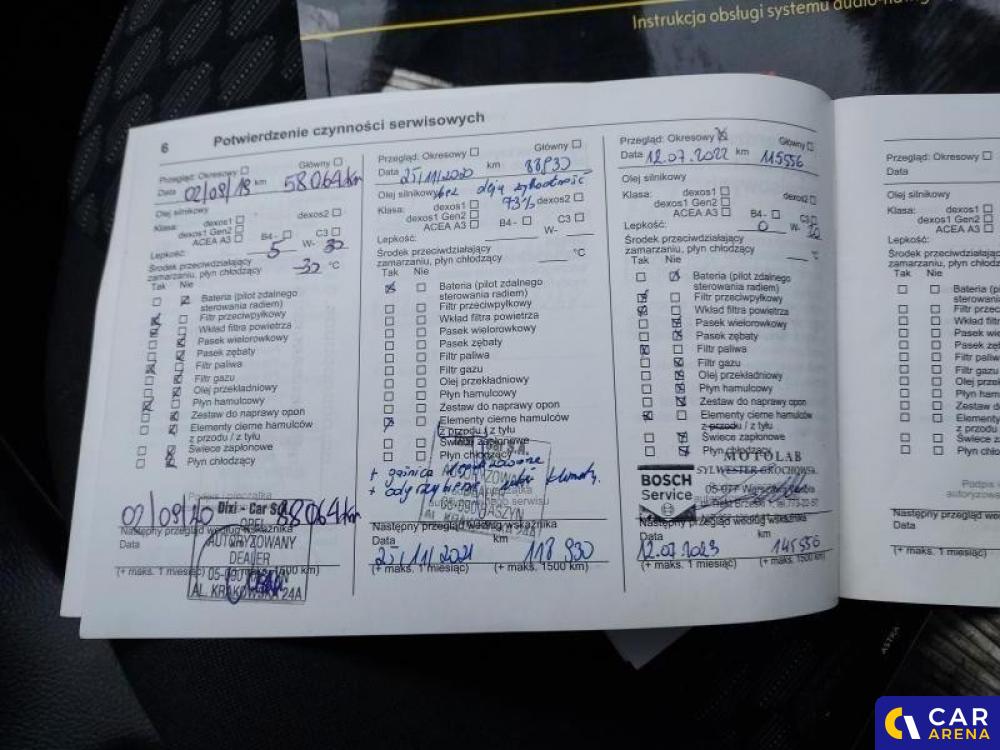 Instrukcja obsługi systemu
6
Potwierdzenie czynności serwisowych
Przegląd: Okresowy
Główny
Data 02/09/19 km 58064km
Olej silnikowy
Klasa:
dexos1
dexos2
dexos1 Gen2
ACEA A3
B4-
C3
Lepkość: 5 W- 30
Środek przeciwdziałający
zamarzaniu, płyn chłodzący -32 °C
Tak Nie
Bateria (pilot zdalnego
sterowania radiem)
Filtr przeciwpyłkowy
Wkład filtra powietrza
Pasek wielorowkowy
Pasek zębaty
Filtr paliwa
Filtr gazu
Olej przekładniowy
Płyn hamulcowy
Zestaw do naprawy opon
Elementy cierne hamulców
z przodu / z tyłu
Świece zapłonowe
Płyn chłodzący
Podpis i pieczątka
02/09/20 88064km
Dixi - Car S.A.
OPEL
AUTORYZOWANY
DEALER
AL. KRAKOWSKA 24A
Następny przegląd według wskaźnika
Data
(+ maks. 1 miesiąc)
1500 km)
Przegląd: Okresowy
Główny
Data 25/11/2020 km 88930
Olej silnikowy
73%
Klasa:
dexos1
dexos2
dexos1 Gen2
ACEA A3
B4-
C3
Lepkość:
W-
Środek przeciwdziałający
zamarzaniu, płyn chłodzący
°C
Tak Nie
Bateria (pilot zdalnego
sterowania radiem)
Filtr przeciwpyłkowy
Wkład filtra powietrza
Pasek wielorowkowy
Pasek zębaty
Filtr paliwa
Filtr gazu
Olej przekładniowy
Płyn hamulcowy
Zestaw do naprawy opon
Elementy cierne hamulców
z przodu / z tyłu
Świece zapłonowe
Płyn chłodzący
+ gaśnica
+
Następny przegląd według wskaźnika
Data km
25/11/2021 118930
(+ maks. 1 miesiąc) (+ maks. 1500 km)
Przegląd: Okresowy
Główny
Data 12.07.2022 km 115556
Olej silnikowy
Klasa:
dexos1
dexos2
dexos1 Gen2
ACEA A3
B4-
C3
Lepkość: 0 W- 30
Środek przeciwdziałający
zamarzaniu, płyn chłodzący
°C
Tak Nie
Bateria (pilot zdalnego
sterowania radiem)
Filtr przeciwpyłkowy
Wkład filtra powietrza
Pasek wielorowkowy
Pasek zębaty
Filtr paliwa
Filtr gazu
Olej przekładniowy
Płyn hamulcowy
Zestaw do naprawy opon
Elementy cierne hamulców
z przodu / z tyłu
Świece zapłonowe
Płyn
MOTOLAB
BOSCH
Service
Następny przegląd według wskaźnika
Data km
12.07.2023 145556
(+ maks. 1 miesiąc) (+ maks. 1500 km)
Przegląd: Okresowy
Data
Olej silnikowy
Klasa:
dexos1
dexos1 Gen2
ACEA A3
Lepkość:
Środek przeciwdziałający
zamarzaniu, płyn chłodzący
Tak Nie
Następny przegląd według
Data
(+ maks. 1 miesiąc)
ASTRA
CAR
ARENA